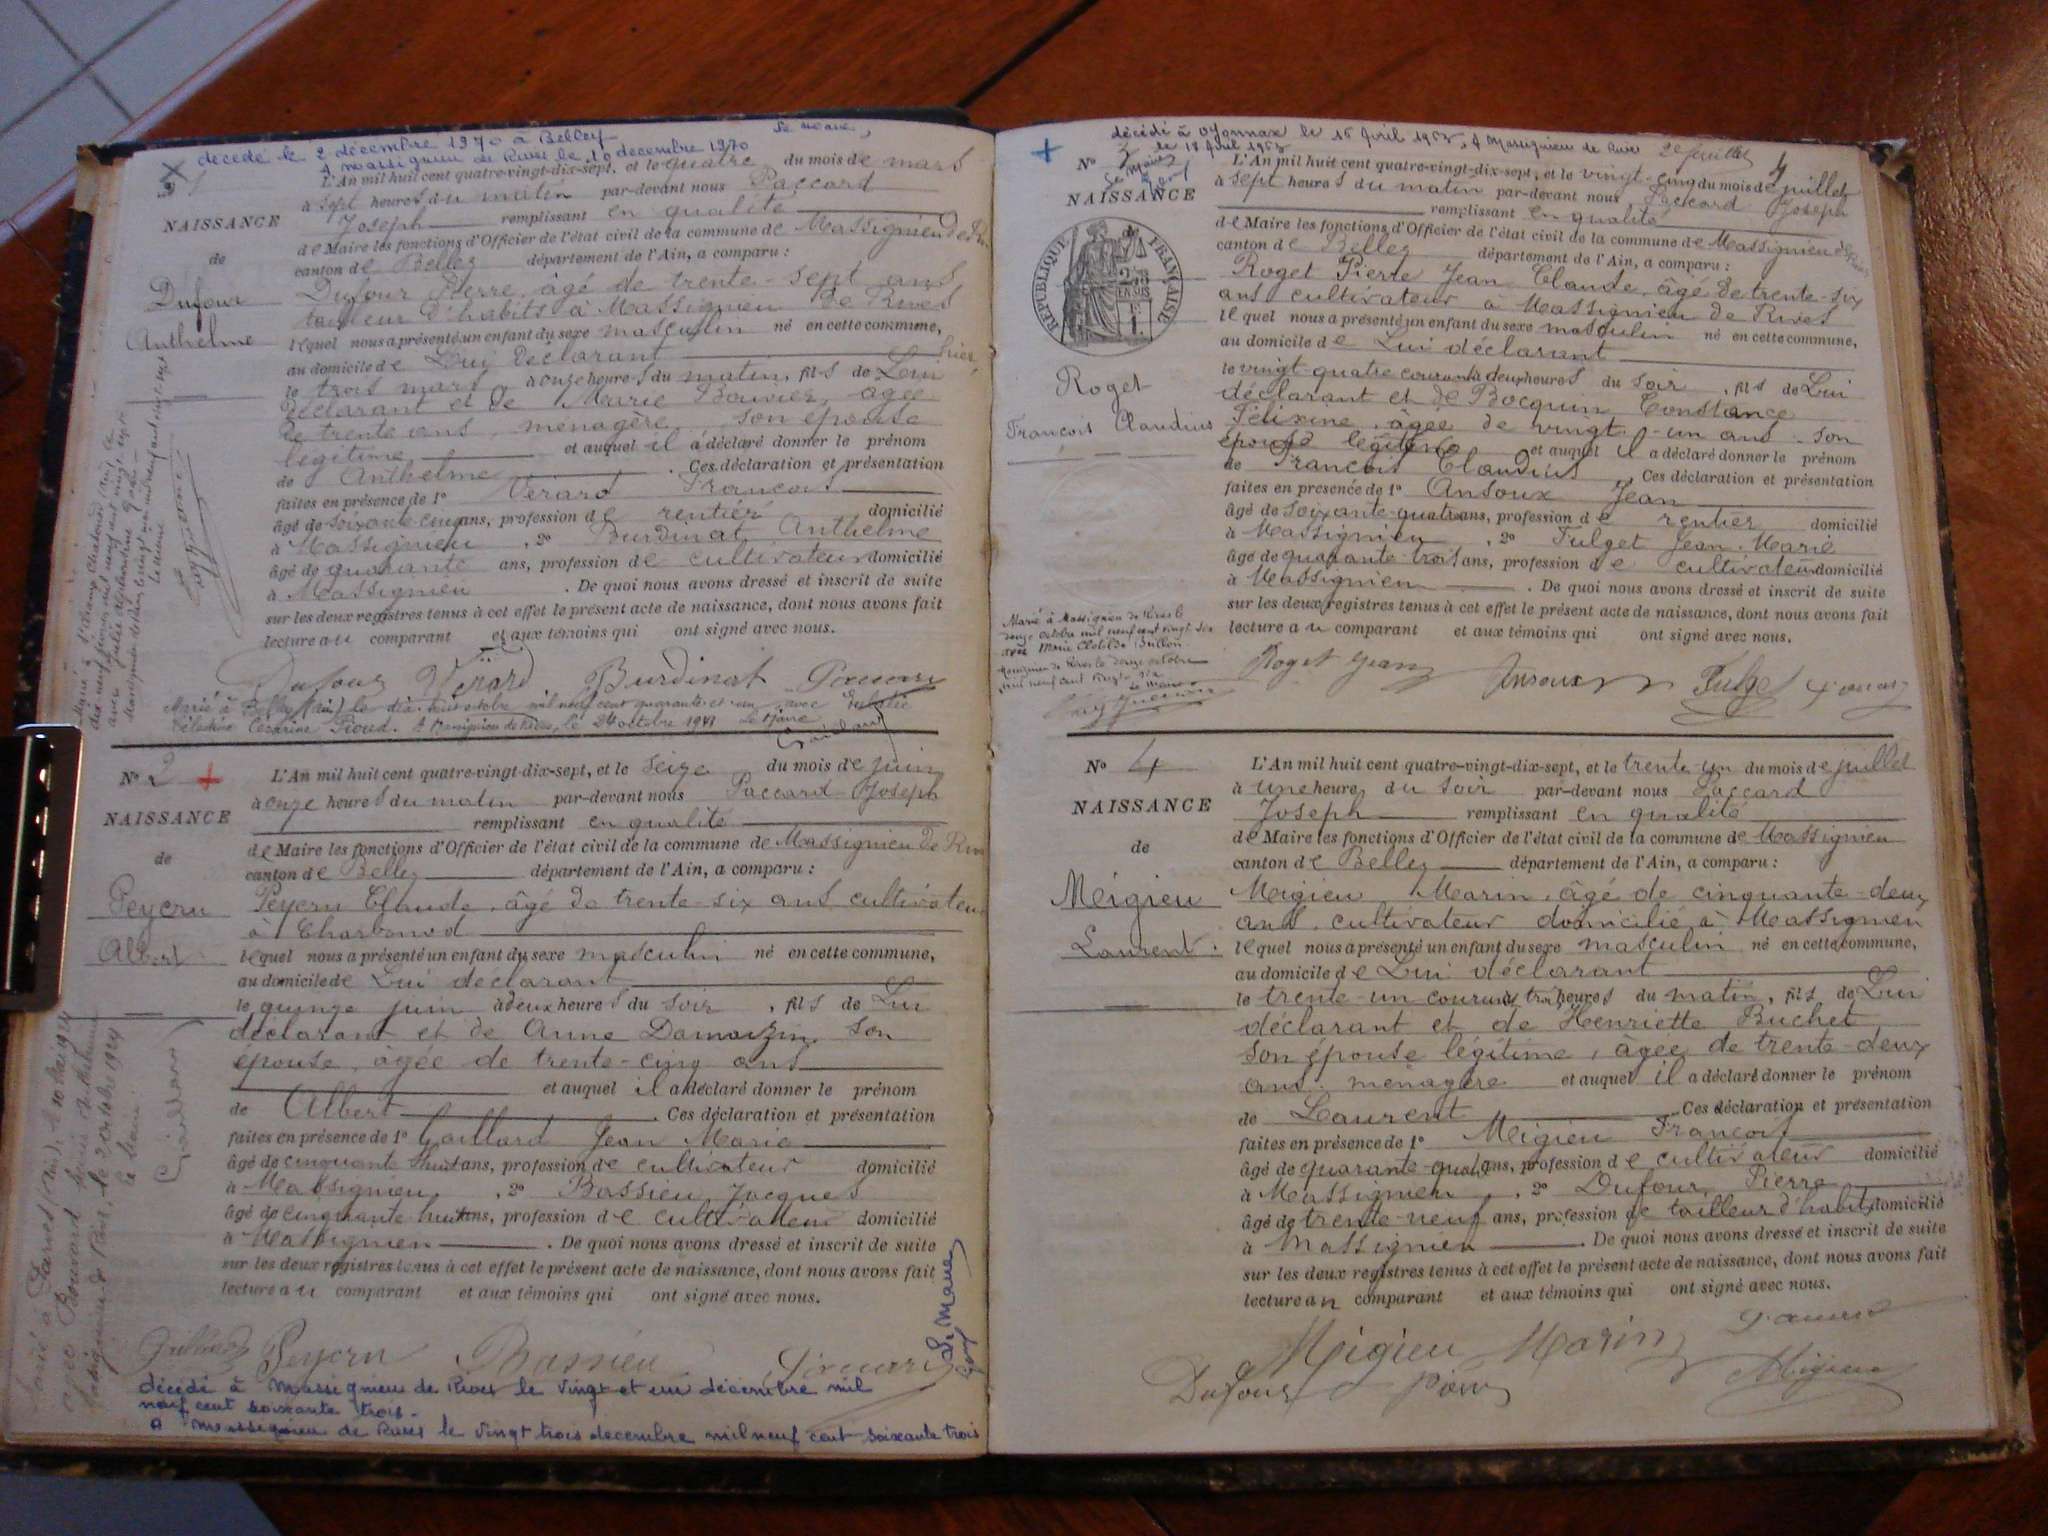 décédé le 2 décembre 1970 à Belley
A Massignieu de Rives le 10 décembre 1970
Le Maire,
NAISSANCE
de
Dufour
Anthelme
L'An mil huit cent quatre-vingt-dix-sept, et le quatre du mois de mars
à sept heures du matin par-devant nous Paccard
Joseph remplissant en qualité
de Maire les fonctions d'Officier de l'état civil de la commune de Massignieu de
canton de Belley département de l'Ain, a comparu :
Dufour Pierre, âgé de trente-sept ans
tailleur d'habits à Massignieu de Rives
lequel nous a présenté un enfant du sexe masculin né en cette commune,
au domicile de Lui déclarant hier
le trois mars, à onze heures du matin, fils de Lui
déclarant et de Marie Bouvier, âgée
de trente ans, ménagère son épouse
légitime et auquel il a déclaré donner le prénom
de Anthelme. Ces déclaration et présentation
faites en présence de 1° Vérard François
âgé de soixante cinq ans, profession de rentier domicilié
à Massignieu, 2° Burdinat Anthelme
âgé de quarante ans, profession de cultivateur domicilié
à Massignieu. De quoi nous avons dressé et inscrit de suite
sur les deux registres tenus à cet effet le présent acte de naissance, dont nous avons fait
lecture au comparant et aux témoins qui ont signé avec nous.
Dufour Vérard Burdinat Paccard
Marié à Belley (Ain) le dix huit octobre mil neuf cent quarante et un avec Eulalie
Célestine Césarine Proud. A Massignieu de Rives, le 24 octobre 1941 Le Maire
N° 2
NAISSANCE
de
Peycru
Albert
L'An mil huit cent quatre-vingt-dix-sept, et le seize du mois de juin
à onze heures du matin par-devant nous Paccard Joseph
remplissant en qualité
de Maire les fonctions d'Officier de l'état civil de la commune de Massignieu de Rives
canton de Belley département de l'Ain, a comparu :
Peycru Claude, âgé de trente-six ans cultivateur
à Charbonod
lequel nous a présenté un enfant du sexe masculin né en cette commune,
au domicile de Lui déclarant
le quinze juin à deux heures du soir, fils de Lui
déclarant et de Anne Damaizin son
épouse, âgée de trente-cinq ans
et auquel il a déclaré donner le prénom
de Albert. Ces déclaration et présentation
faites en présence de 1° Gaillard Jean Marie
âgé de cinquante huit ans, profession de cultivateur domicilié
à Massignieu, 2° Bassieu Jacques
âgé de cinquante huit ans, profession de cultivateur domicilié
à Massignieu. De quoi nous avons dressé et inscrit de suite
sur les deux registres tenus à cet effet le présent acte de naissance, dont nous avons fait
lecture au comparant et aux témoins qui ont signé avec nous.
Gaillard Peycru Bassieu Paccard
Le Maire
décédé à Massignieu de Rives le vingt et un décembre mil
neuf cent soixante trois.
A Massignieu de Rives le vingt trois décembre mil neuf cent soixante trois
décédé à Oyonnax le 15 Avril 1953, A Massignieu de Rives
le 18 Avril 1953
Le Maire
2e feuillet
4
N° 3
NAISSANCE
RÉPUBLIQUE FRANÇAISE
Roget
François Claudius
L'An mil huit cent quatre-vingt-dix-sept, et le vingt-cinq du mois de juillet
à sept heures du matin par-devant nous Paccard Joseph
remplissant en qualité
de Maire les fonctions d'Officier de l'état civil de la commune de Massignieu de Rives
canton de Belley département de l'Ain, a comparu :
Roget Pierre Jean Claude, âgé de trente-six
ans cultivateur à Massignieu de Rives
lequel nous a présenté un enfant du sexe masculin né en cette commune,
au domicile de Lui déclarant
le vingt-quatre courant à deux heures du soir, fils de Lui
déclarant et de Bocquin Constance
Félixine, âgée de vingt-un ans son
épouse légitime et auquel il a déclaré donner le prénom
de François Claudius Ces déclaration et présentation
faites en présence de 1° Ansoux Jean
âgé de soixante-quatre ans, profession de rentier domicilié
à Massignieu, 2° Fulget Jean-Marie
âgé de quarante-trois ans, profession de cultivateur domicilié
à Massignieu. De quoi nous avons dressé et inscrit de suite
sur les deux registres tenus à cet effet le présent acte de naissance, dont nous avons fait
lecture au comparant et aux témoins qui ont signé avec nous.
Marié à Massignieu de Rives le
douze octobre mil neuf cent vingt six
avec Marie Clotilde Bullon
Massignieu de Rives le douze octobre
mil neuf cent vingt six
Le Maire
Roget Jean Ansoux Fulget Paccard
N° 4
NAISSANCE
de
Meigieu
Laurent
L'An mil huit cent quatre-vingt-dix-sept, et le trente-un du mois de juillet
à une heure du soir par-devant nous Paccard
Joseph remplissant en qualité
de Maire les fonctions d'Officier de l'état civil de la commune de Massignieu
canton de Belley département de l'Ain, a comparu :
Meigieu Marin, âgé de cinquante-deux
ans, cultivateur domicilié à Massignieu
lequel nous a présenté un enfant du sexe masculin né en cette commune,
au domicile de Lui déclarant
le trente-un courant à trois heures du matin, fils de Lui
déclarant et de Henriette Buchet
son épouse légitime, âgée de trente-deux
ans ménagère et auquel il a déclaré donner le prénom
de Laurent Ces déclaration et présentation
faites en présence de 1° Meigieu François
âgé de quarante-quatre ans, profession de cultivateur domicilié
à Massignieu, 2° Dufour Pierre
âgé de trente-neuf ans, profession de tailleur d'habits domicilié
à Massignieu. De quoi nous avons dressé et inscrit de suite
sur les deux registres tenus à cet effet le présent acte de naissance, dont nous avons fait
lecture au comparant et aux témoins qui ont signé avec nous.
Paccard
Meigieu Marin
Dufour Meigieu